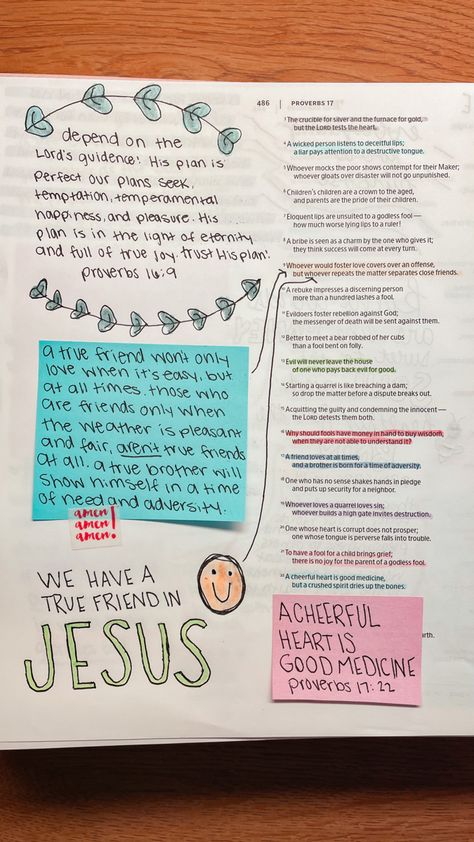 depend on the
Lord's guidence! His plan is
perfect our plans seek,
temptation, temperamental
happiness, and pleasure. His
plan is in the light of eternity
and full of true joy. trust His plan!
proverbs 16:9
a true friend wont only
love when it's easy, but
at all times. those who
are friends only when
the weather is pleasant
and fair, aren't true friends
at all. a true brother will
show himself in a time
of need and adversity.
amen
amen!
amen!
WE HAVE A
TRUE FRIEND IN
JESUS
486 | PROVERBS 17
3 The crucible for silver and the furnace for gold,
but the LORD tests the heart.
4 A wicked person listens to deceitful lips;
a liar pays attention to a destructive tongue.
5 Whoever mocks the poor shows contempt for their Maker;
whoever gloats over disaster will not go unpunished.
6 Children's children are a crown to the aged,
and parents are the pride of their children.
7 Eloquent lips are unsuited to a godless fool —
how much worse lying lips to a ruler!
8 A bribe is seen as a charm by the one who gives it;
they think success will come at every turn.
9 Whoever would foster love covers over an offense,
but whoever repeats the matter separates close friends.
10 A rebuke impresses a discerning person
more than a hundred lashes a fool.
11 Evildoers foster rebellion against God;
the messenger of death will be sent against them.
12 Better to meet a bear robbed of her cubs
than a fool bent on folly.
13 Evil will never leave the house
of one who pays back evil for good.
14 Starting a quarrel is like breaching a dam;
so drop the matter before a dispute breaks out.
15 Acquitting the guilty and condemning the innocent —
the LORD detests them both.
16 Why should fools have money in hand to buy wisdom,
when they are not able to understand it?
17 A friend loves at all times,
and a brother is born for a time of adversity.
18 One who has no sense shakes hands in pledge
and puts up security for a neighbor.
19 Whoever loves a quarrel loves sin;
whoever builds a high gate invites destruction.
20 One whose heart is corrupt does not prosper;
one whose tongue is perverse falls into trouble.
21 To have a fool for a child brings grief;
there is no joy for the parent of a godless fool.
22 A cheerful heart is good medicine,
but a crushed spirit dries up the bones.
A CHEERFUL
HEART IS
GOOD MEDICINE
proverbs 17:22